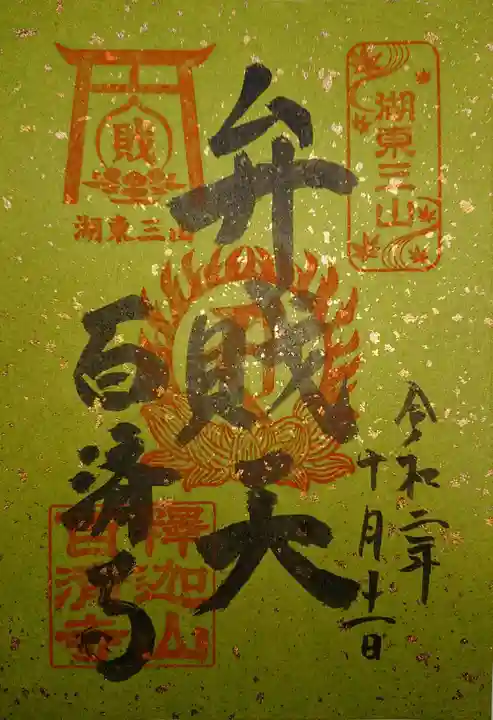 湖東三山
令和二年
十月十一日
弁戝天
戝
湖東三山
百済寺
釋迦山
百済寺